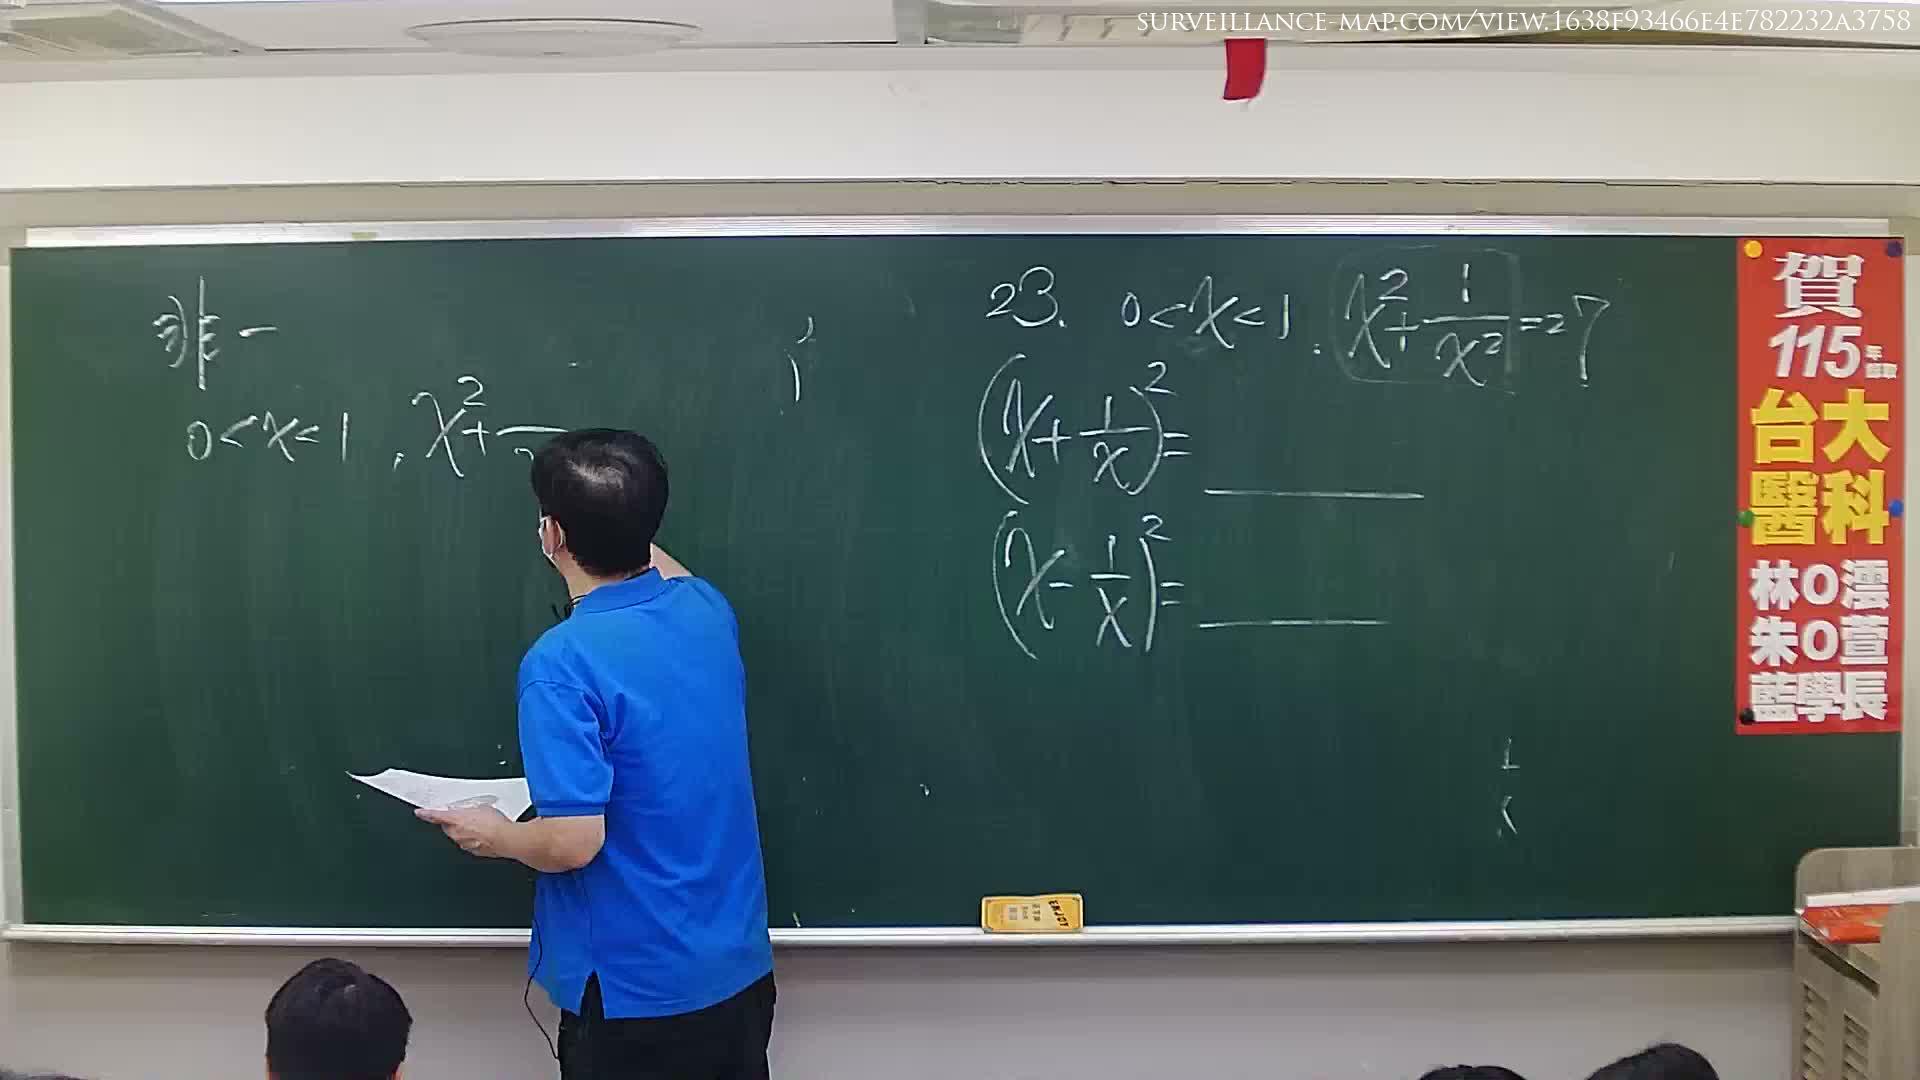 SURVEILLANCE-MAP.COM/VIEW.1638F93466E4E782232A3758
非一
0<x<1, x²+
23. 0<x<1, x²+1/x²=27
(x+1/x)²=
(x-1/x)²=
賀
115年
台大
醫科
林O澐
朱O萱
藍學長
ENJOY